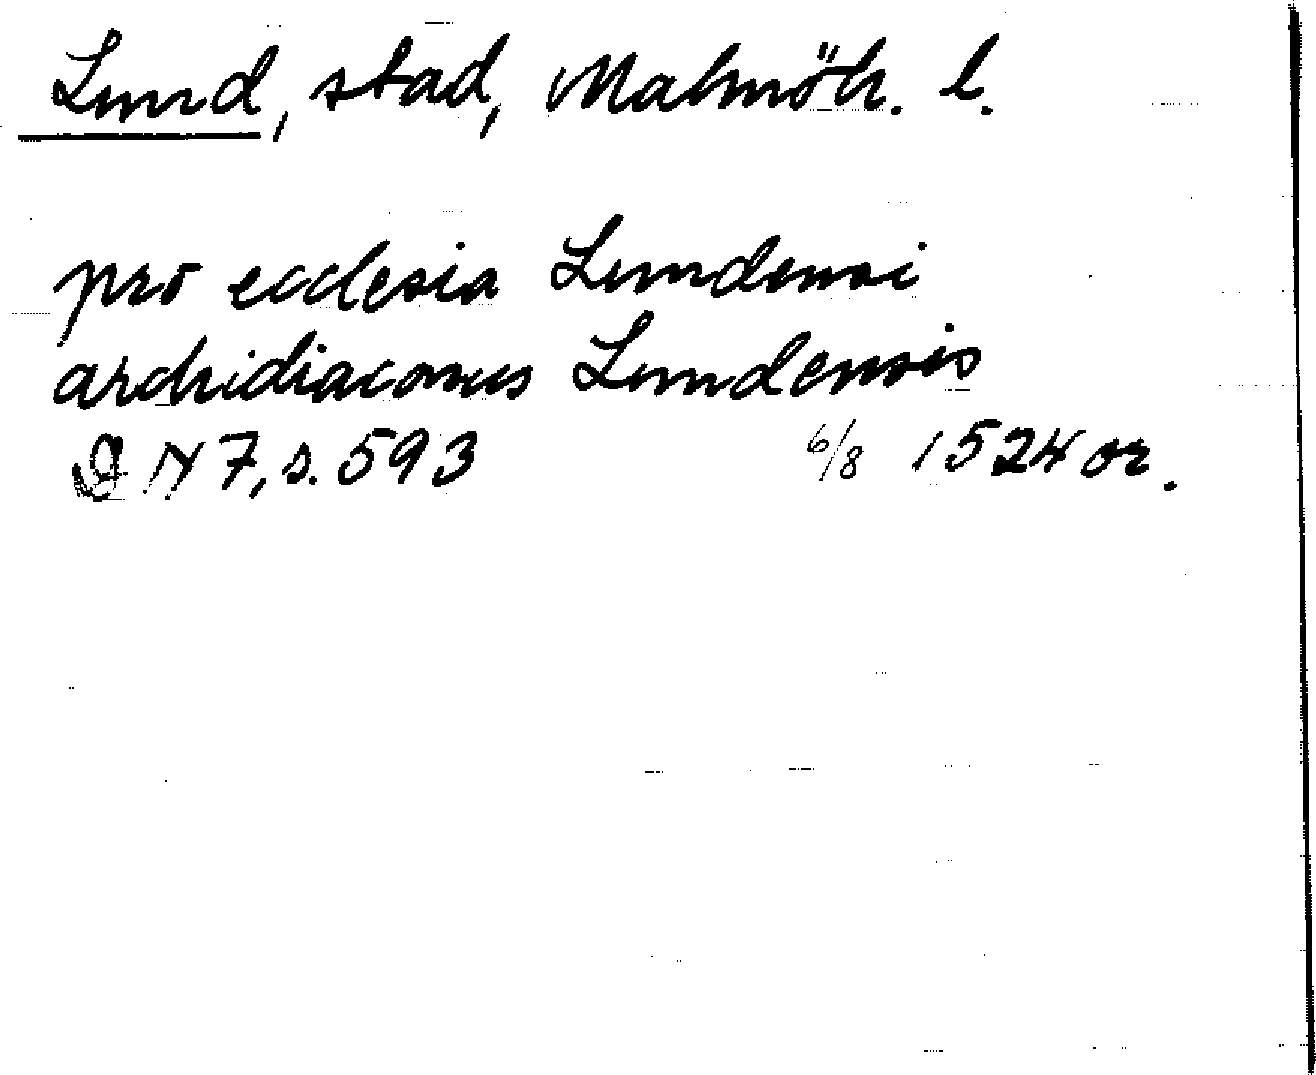 Lund, stad, Malmöh. l.
pro ecclesia Lundensi
archidiaconus Lundensis
DN 7, s. 593 6/8 1524 or.